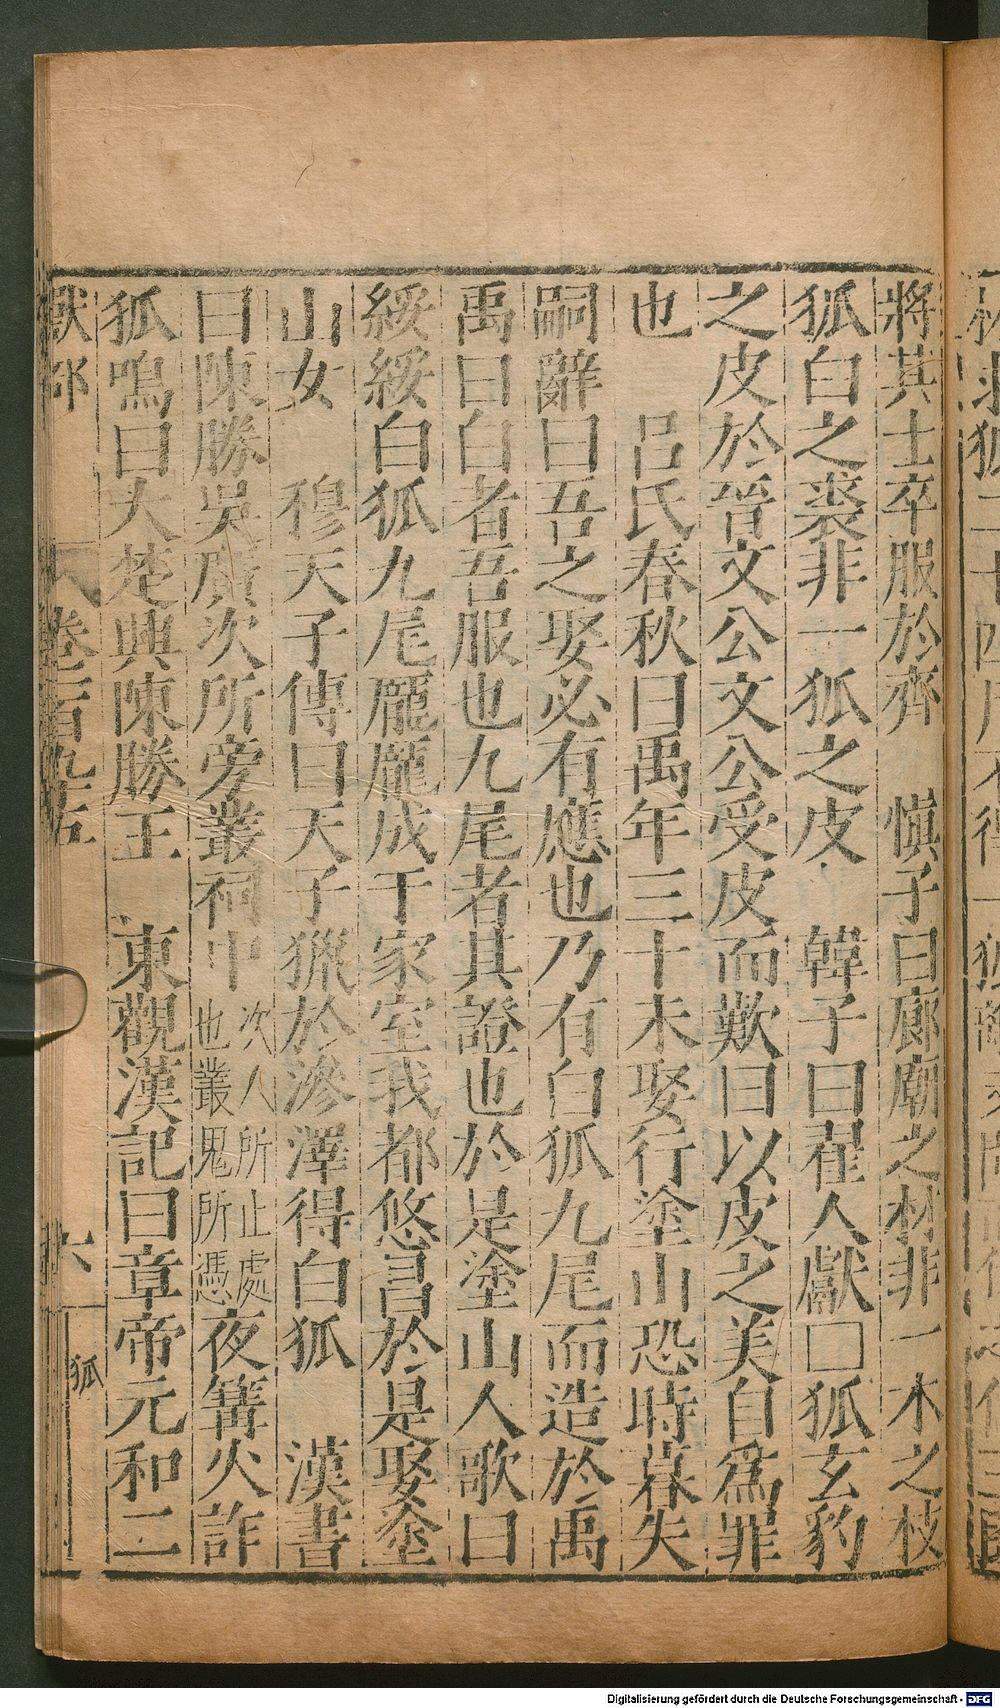 將其士卒服於齊　慎子曰廊廟之材非一木之枝
狐白之裘非一狐之皮　韓子曰翟人獻□狐玄豹
之皮於晉文公文公受皮而歎曰以皮之美自爲罪
也　呂氏春秋曰禹年三十未娶行塗山恐時暮失
嗣辭曰吾之娶必有應也乃有白狐九尾而造於禹
禹曰白者吾服也九尾者其證也於是塗山人歌曰
綏綏白狐九尾龐龐成于家室我都攸昌於是娶塗
山女　穆天子傳曰天子獵於滲澤得白狐　漢書
曰陳勝吳廣次所旁叢祠中次人所止處也叢鬼所憑夜篝火詐
狐鳴曰大楚興陳勝王　東觀漢記曰章帝元和二
獸部　卷一百九十五　六　狐
Digitalisierung gefördert durch die Deutsche Forschungsgemeinschaft - DFG